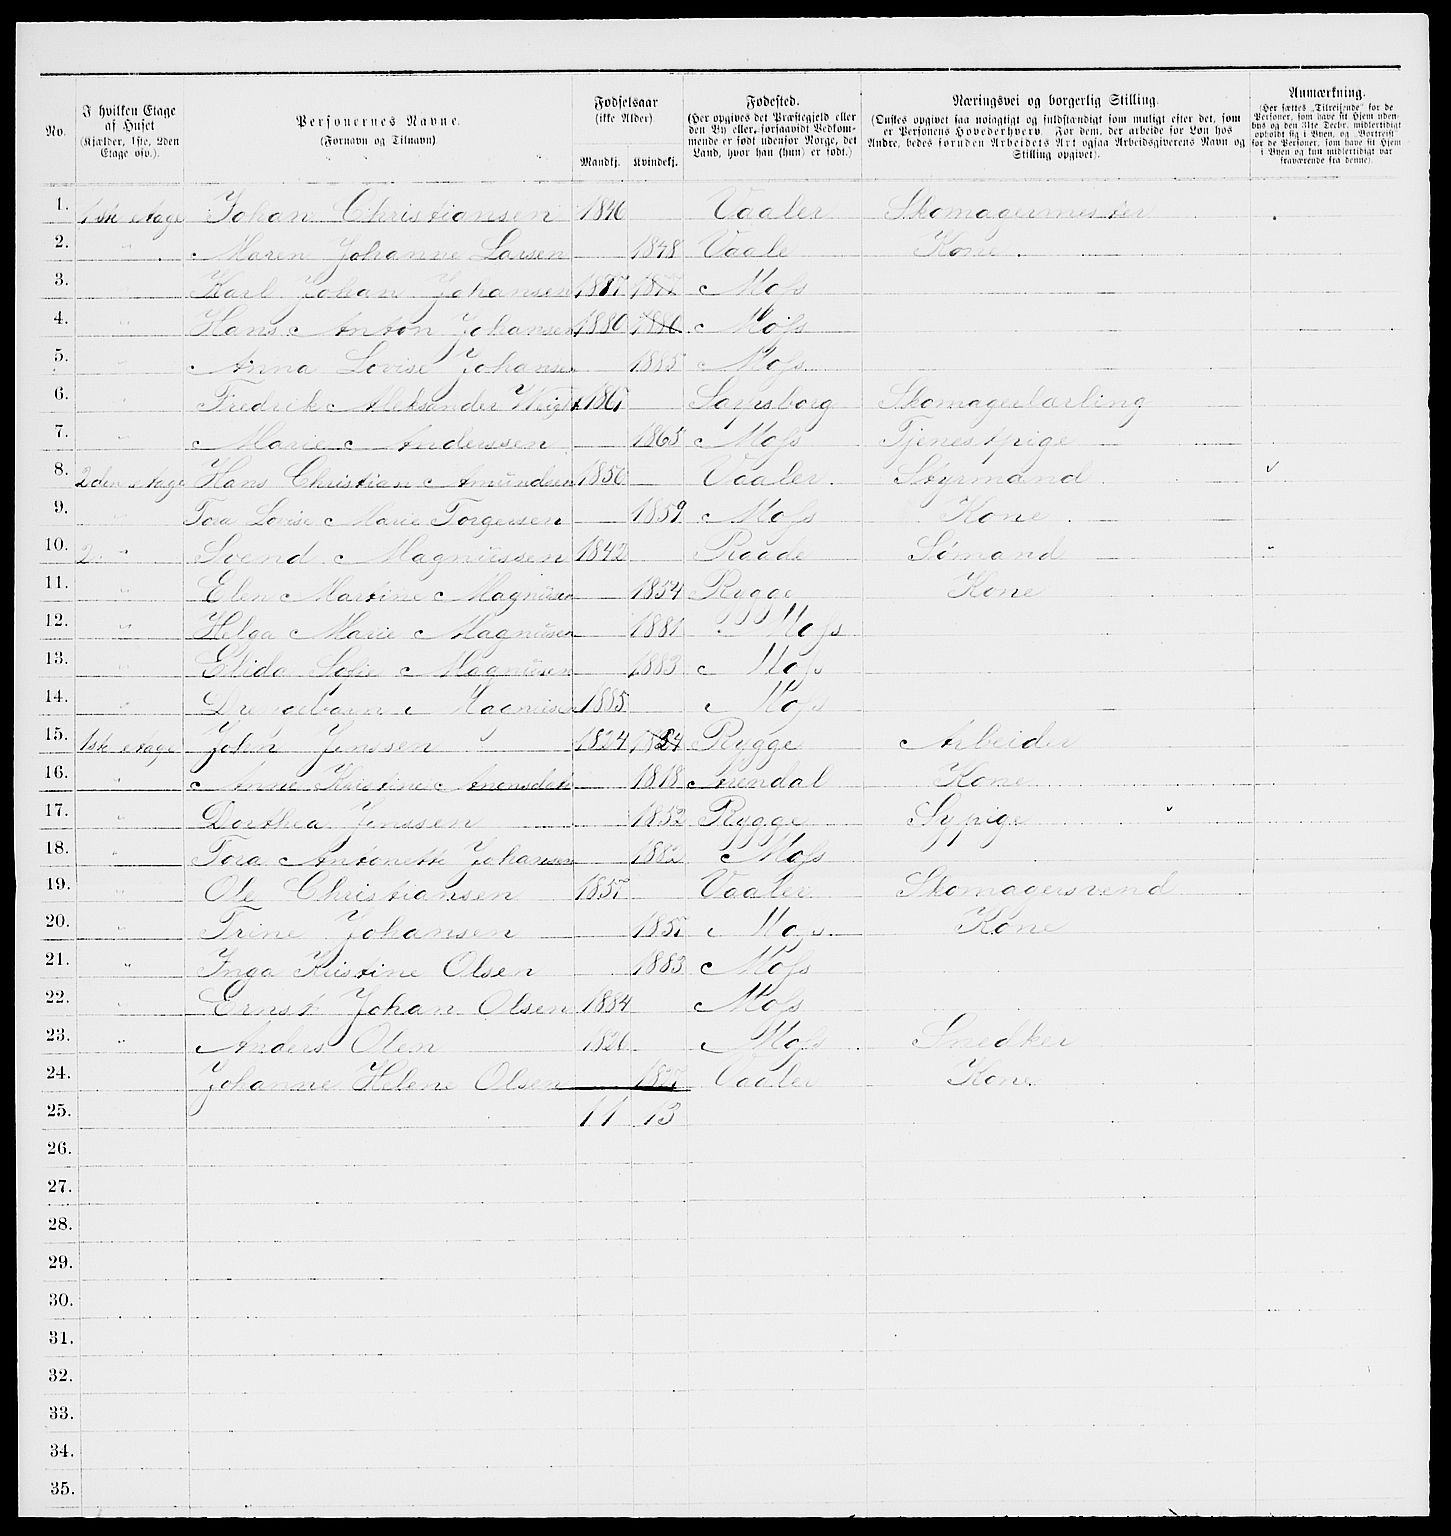 No. | I hvilken Etage af Huset (Kjælder, 1ste, 2den Etage osv.). | Personernes Navne. (Fornavn og Tilnavn) | Fødselsaar (ikke Alder) Mandkj. | Kvindekj. | Fødested. (Her opgives det Præstegjeld eller den By eller, forsaavidt Vedkommende er født udenfor Norge, det Land, hvor han (hun) er født.) | Næringsvei og borgerlig Stilling. (Ønskes opgivet saa nøiagtigt og fuldstændigt som muligt efter det, som er Personens Hovederhverv. For dem, der arbeide for Løn hos Andre, bedes foruden Arbeidets Art ogsaa Arbeidsgiverens Navn og Stilling opgivet). | Anmærkning. (Her sættes „Tilreisende" for de Personer, som have sit Hjem udenbys og den 31te Decbr. midlertidigt opholdt sig i Byen, og „Bortreist" for de Personer, som have sit Hjem i Byen og kun midlertidigt var fraværende fra denne).
1. 1ste etage Johan Christiansen 1846 Vaaler Skomagermester
2. " Maren Johanne Larsen 1848 Vaale Kone
3. " Karl Johan Johansen 1877 1877 Moss
4. " Hans Anton Johansen 1880 1880 Moss
5. " Anna Lovise Johansen 1885 Moss
6. " Fredrik Aleksander Sarpsborg Skomagerlærling
7. " Marie Anderssen 1865 Moss Tjenestpige
8. 2den etage Hans Christian Amundsen 1850 Vaaler Styrmand
9. " Tora Lovise Marie Torgersen 1859 Moss Kone
10. 2 " Svend Magnussen 1842 Raade Sømand
11. " Elen Martine Magnusen 1854 Rygge Kone
12. " Helga Marie Magnusen 1881 Moss
13. " Elida Sofie Magnusen 1883 Moss
14. " Drengebarn Magnusen 1885 Moss
15. 1ste etage John Jenssen 1824 1824 Rygge Arbeider
16. " Anne Kristine 1818 Arendal Kone
17. " Dorthea Jenssen 1852 Rygge Sypige
18. " Tora Antonette Johansen 1882 Moss
19. " Ole Christiansen 1857 Vaaler Skomagersvend
20. " Trine Johansen 1857 Moss Kone
21. " Inga Kristine Olsen 1883 Moss
22. " Ernst Johan Olsen 1884 Moss
23. " Anders Olen 1820 Moss Snedker
24. Johanne Helene Olsen Vaaler Kone
25. 11 13
26.
27.
28.
29.
30.
31.
32.
33.
34.
35.